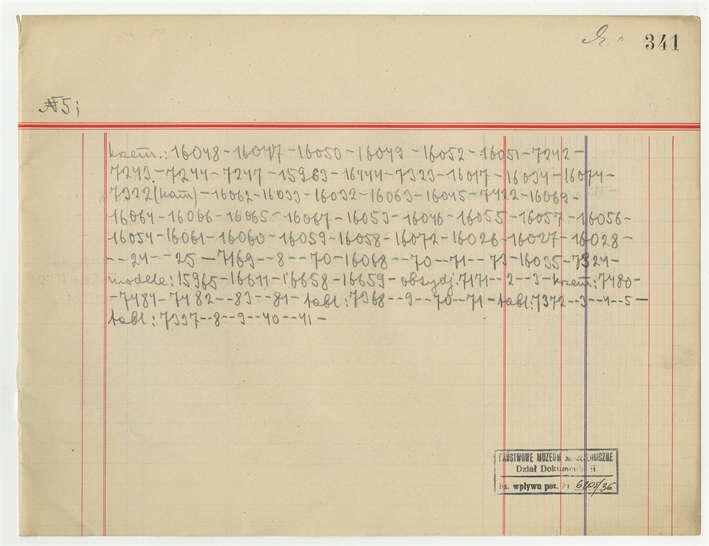 341
N 5;
krzem.: 16048-16047-16050-16049-16052-16051-7242-
7243-7244-7247-15963-16444-7323-16017-16034-16074-
7322(kam)-16062-16033-16032-16063-16045-7422-16069-
16064-16066-16065-16067-16053-16046-16055-16057-16056-
16054-16061-16060-16059-16058-16072-16026-16027-16028-
--24--25-7169--8--70-16068--70--71--73-16035-7324-
modele: 15965-16611-16658-16659-obsydj.7171--2--3-krzem:7480-
-7481-7482--83--81-tabl:7368--9--70--71-tabl:7372--3--4--5-
tabl:7337--8--9--40--41-
PAŃSTWOWE MUZEUM ARCHEOLOGICZNE
Dział Dokumentacji
Ks. wpływu poz. Nr